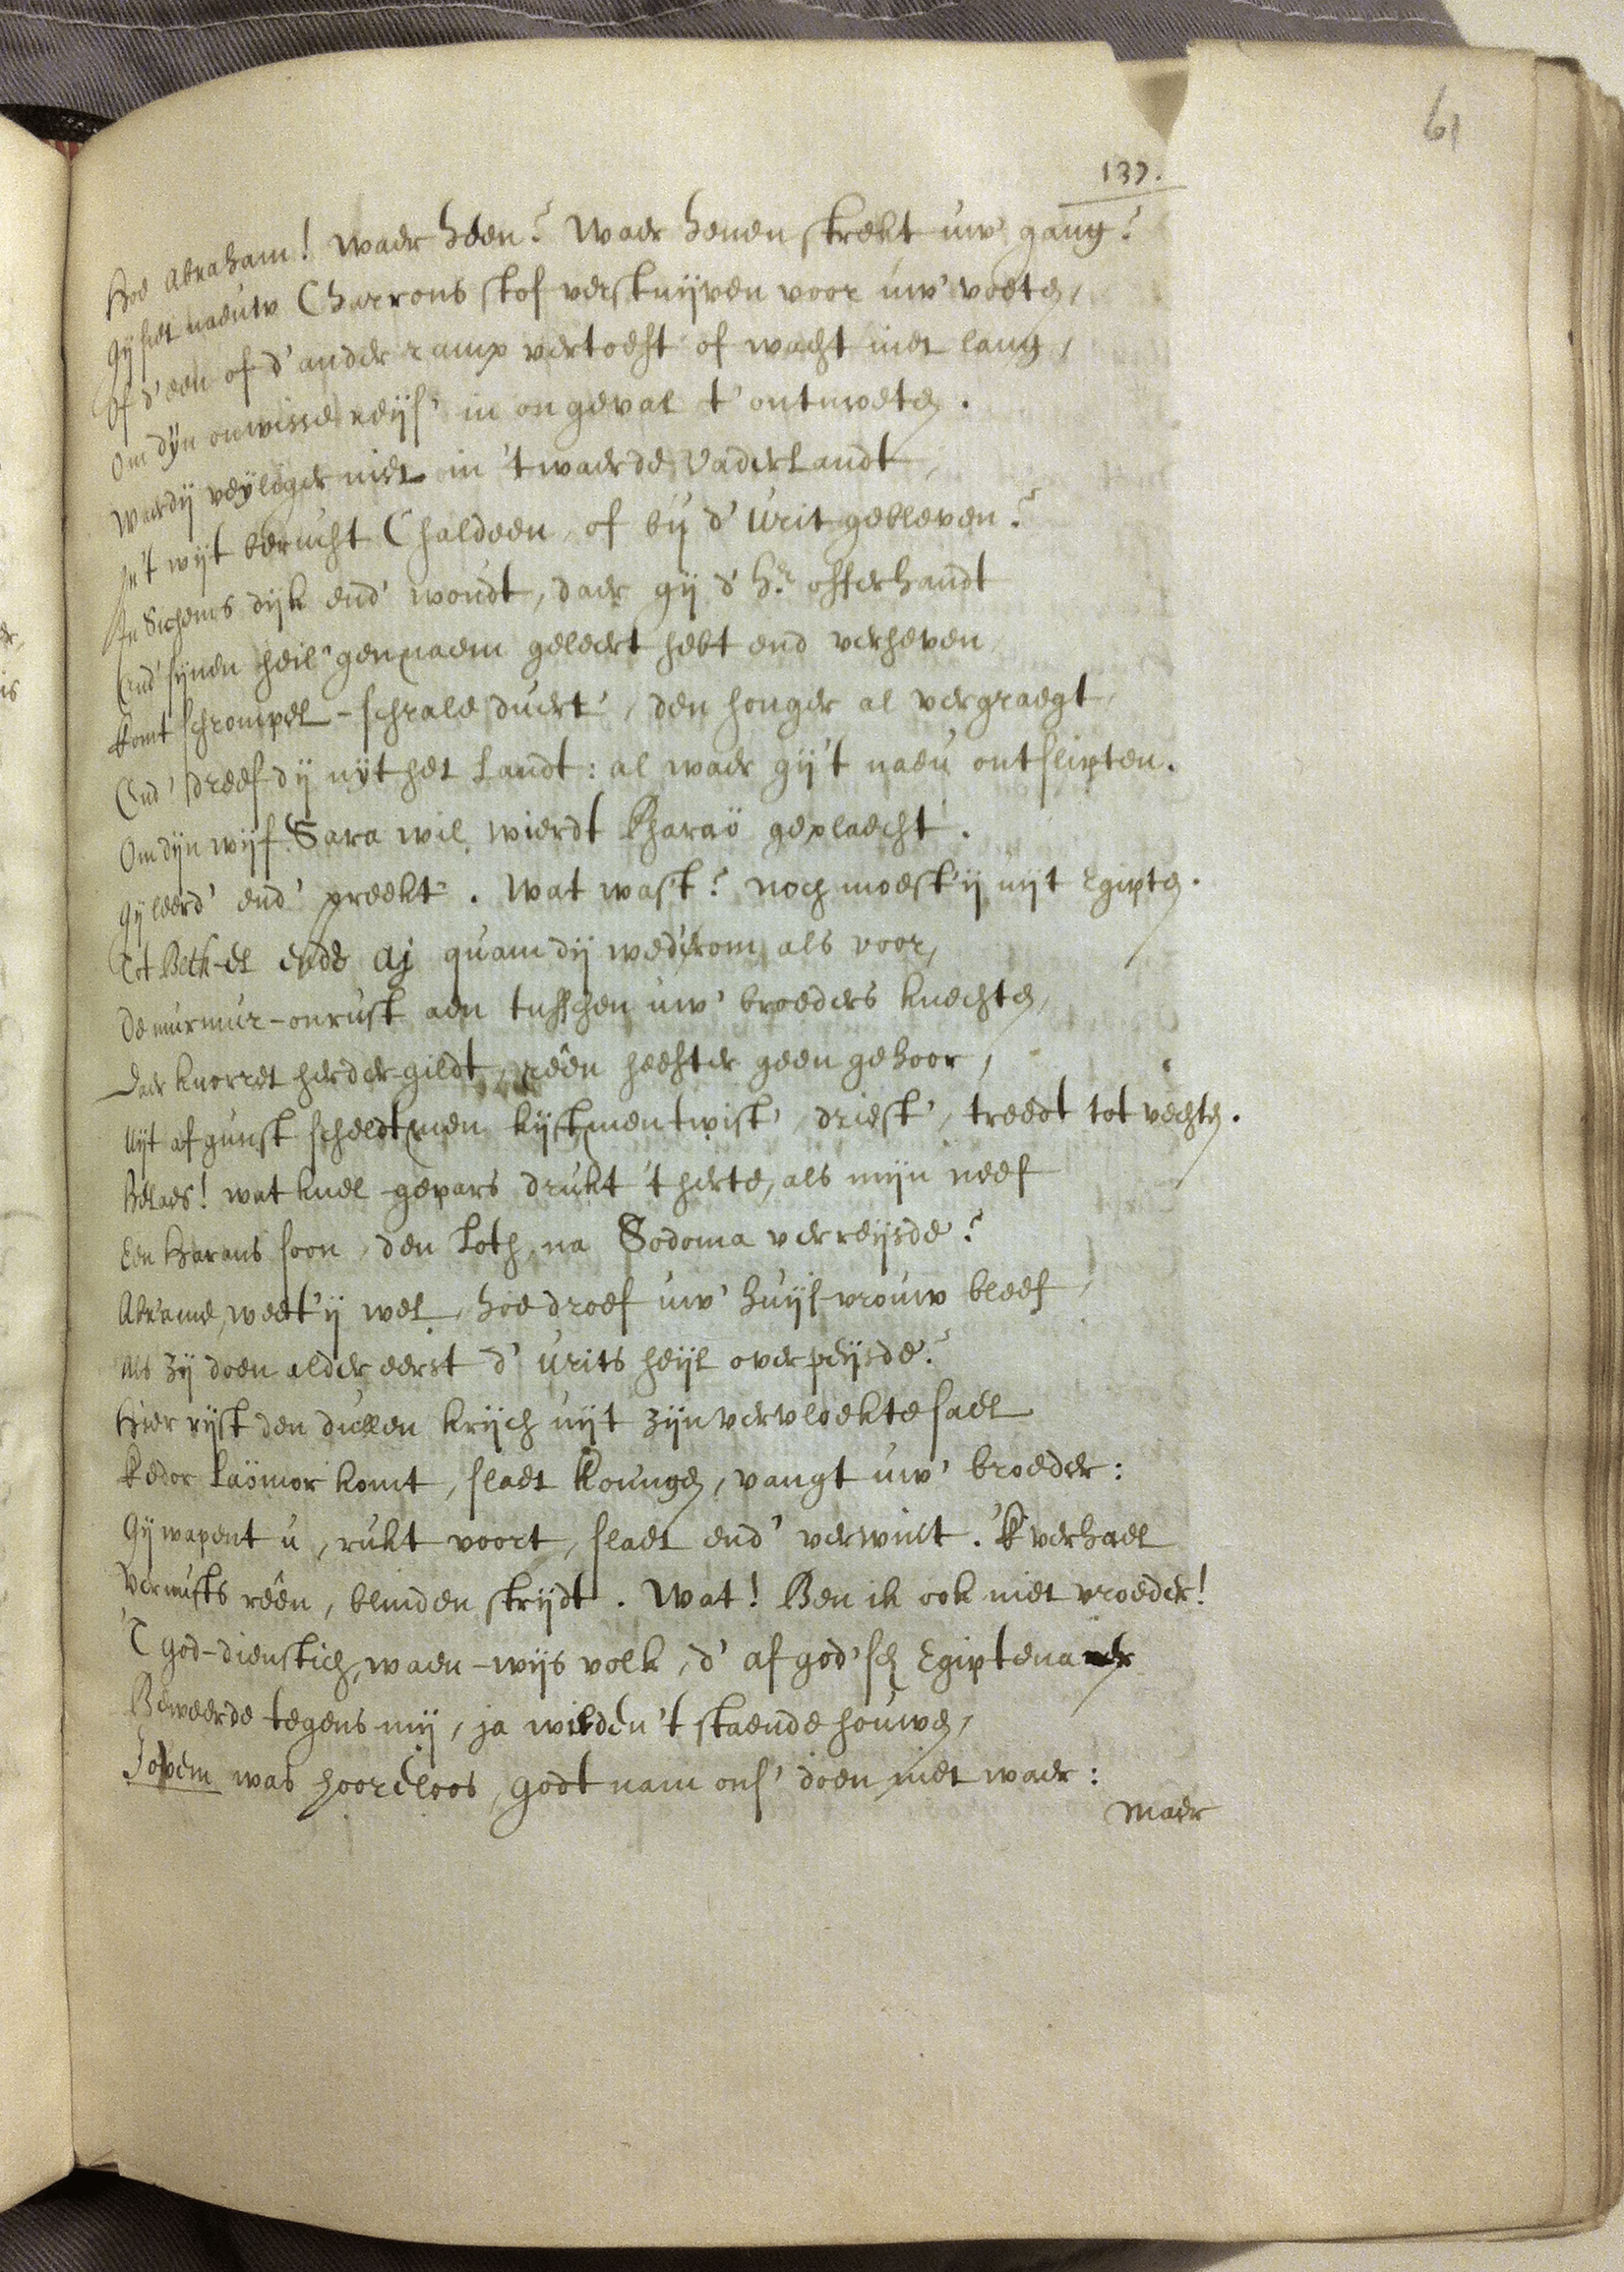 61
137.
Hoe Abraham! waer heen? Waer henen strekt uw' gang?
Gij siet naeuw Charrons stof verstuijven voor uw' voeten,
Of d'een of d'ander ramp vertoeft of wacht niet lang,
Om dijn onwisse reijs' in ongeval t'ontmoeten.
Waerdij veijliger niet in 't waerde Vaderlandt,
In 't wijt berucht Chaldeen, of bij d'Urit gebleven?
In Sichems dijk end' woudt, daer gij d' Hr. offerhandt
End' sijnen heil'gen naem geleert hebt end verheven
Komt schrompel-schrale duert', den honger al vergraegt,
End' dreef dij uijt het Landt: al waer gij't naeu ontslipten.
Om dijn wijf Sara wil wierdt Pharaö geplaecht.
Gij leerd' end' preekt'. Wat wast? noch moest'ij uijt Egipten.
Tot Beth-el ende Aj quam dij wederom als voor,
De murmur-onrust aen tusschen uw' broeders knechten,
Daer knorret herder-gildt, reên heefter geen gehoor,
Uijt afgunst scheldtmen kijftmen twist', driest', treedt tot vechten.
Helaes! wat knel-gepars drukt 't herte, als mijn neef
Een Harans soon, den Loth, na Sodoma verreijsde?
Abrame, weet'ij wel, hoe droef uw' huijsvrouw bleef,
Als zij doen aldereerst d' Urits heijl overpeijsde?
Hier rijst den dullen krijch uijt zijn vervloekte sael
Kedor Laömor komt, slaet Koungen, vangt uw' broeder:
Gij wapent u, rukt voort, slaet end' verwint. 'K verhael
Vernufts reên, blinden strijdt. Wat! Ben ik ook niet vroeder!
'T god-dienstich, waen-wijs volk, d' afgod'sch Egiptenaer
Beweerde tegens mij, ja wilden 't staende houwen,
Jovem was hooreloos, godt nam ons' doen niet waer:
Maer